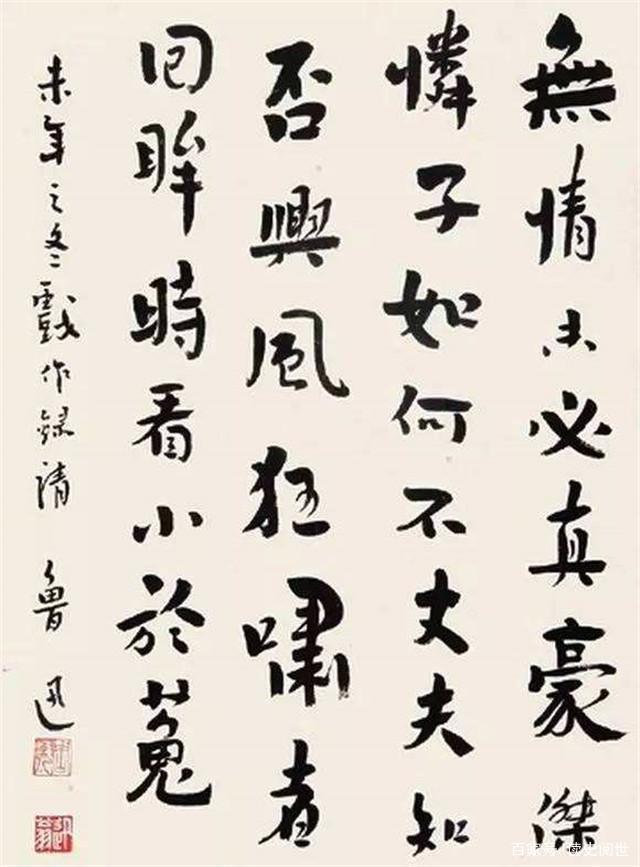 無情未必真豪傑
憐子如何不丈夫知
否興風狂嘯者
回眸時看小於菟
未年之冬戲作錄請 魯迅
迅翁
百家号/读史阅世